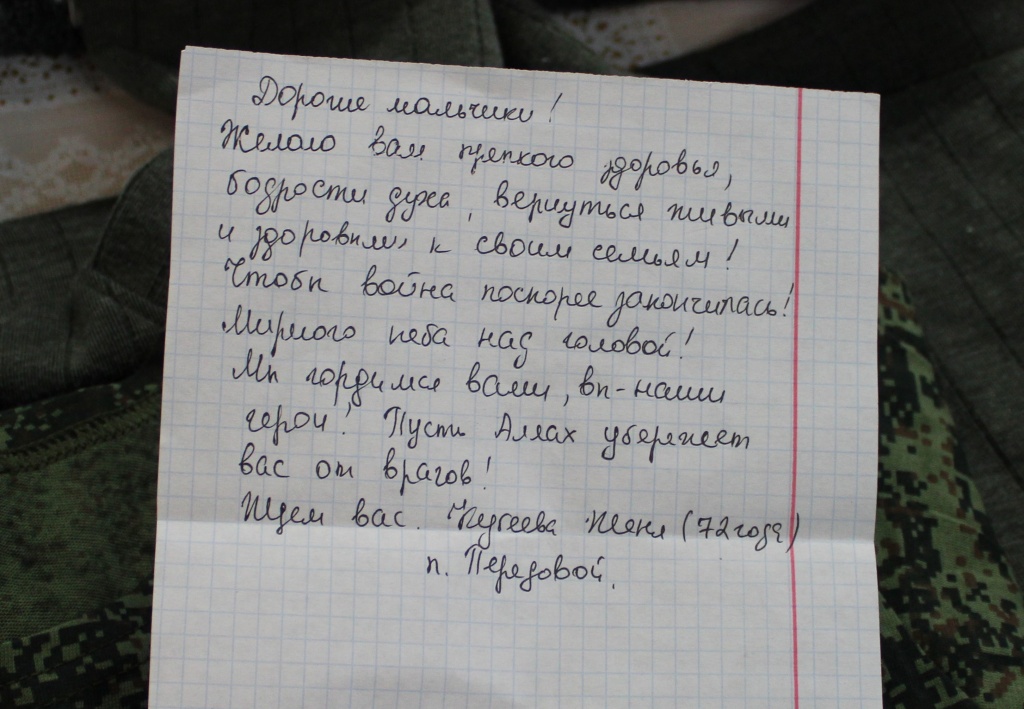 Дорогие мальчики!
Желаю вам крепкого здоровья,
бодрости духа, вернуться живыми
и здоровыми к своим семьям!
Чтобы война поскорее закончилась!
Мирного неба над головой!
Мы гордимся вами, вы-наши
герои! Пусть Аллах убережет
вас от врагов!
Ждем вас. Женя (72 года)
п. Передовой.